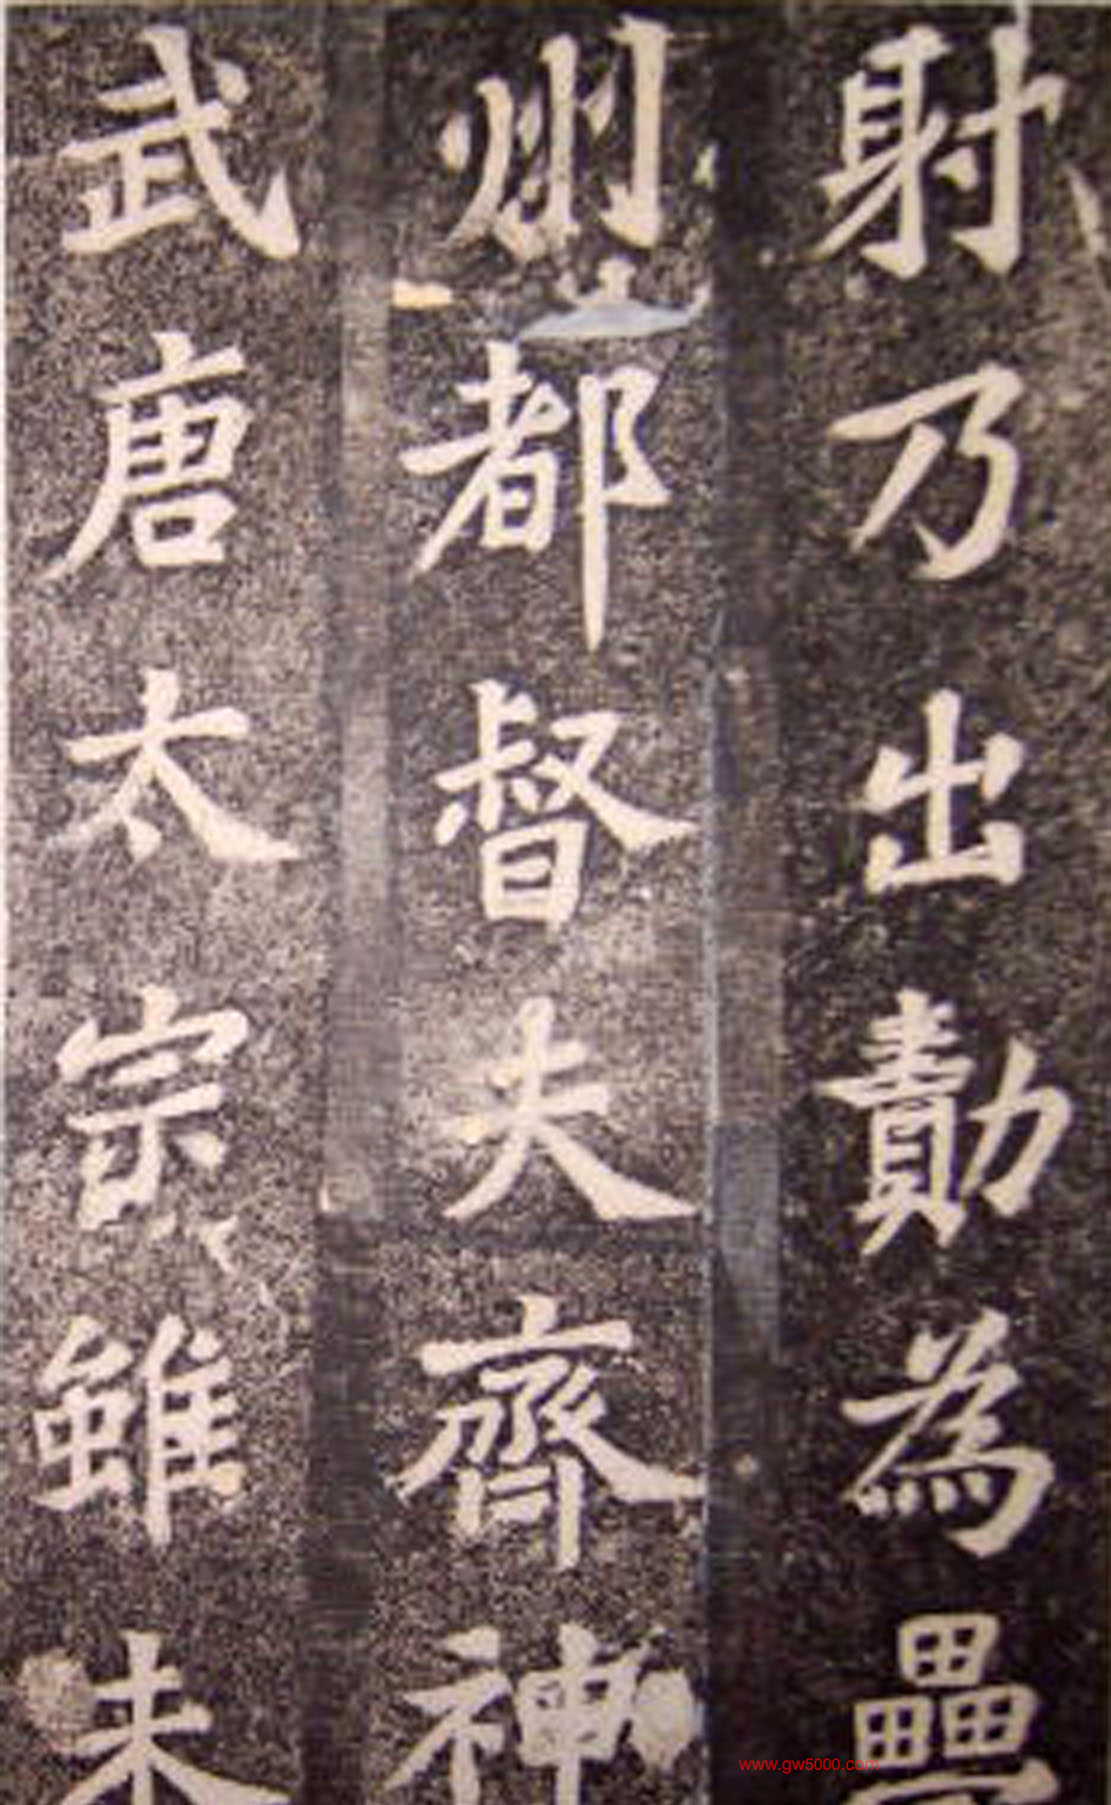 射乃出勣為疊
州都督夫齊神
武唐太宗雖未
www.gw5000.com